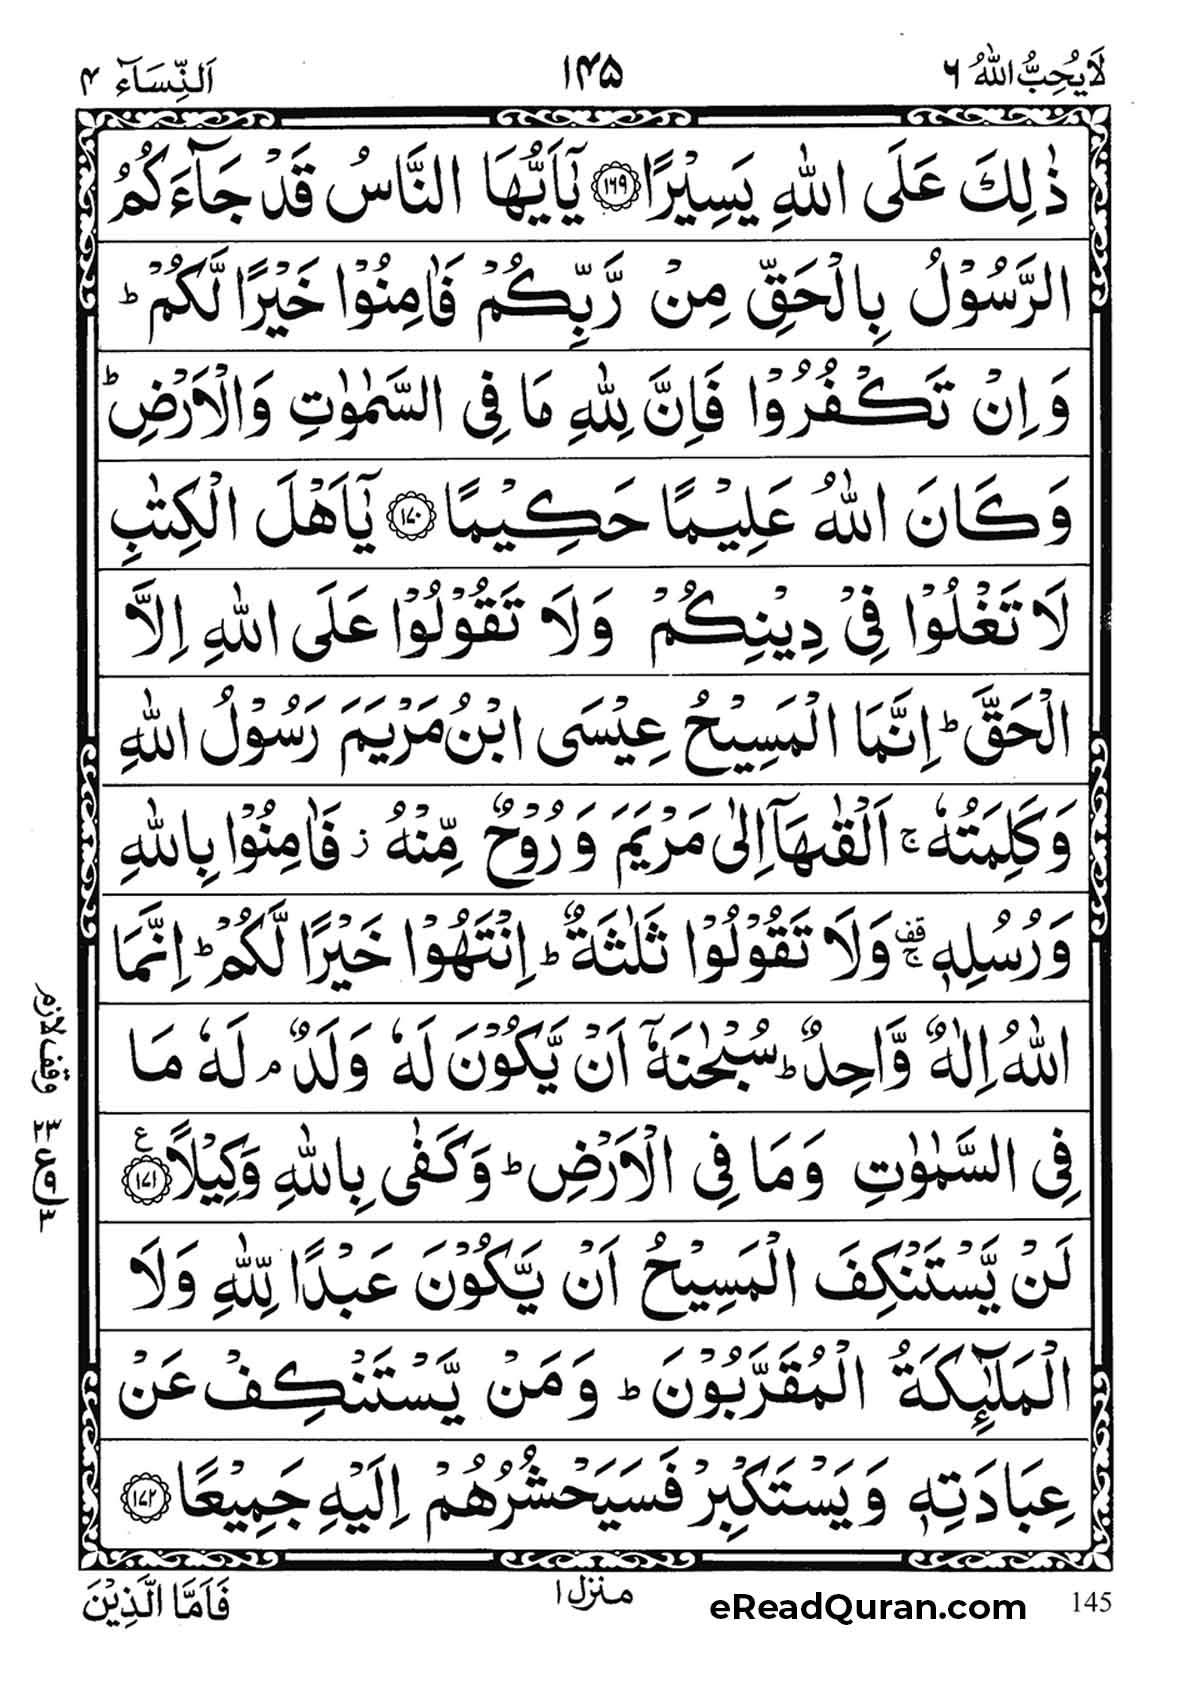 لَا يُحِبُّ اللهُ ٦ ١٤٥ اَلنِّسَآء ٤
ذٰلِكَ عَلَى اللهِ يَسِيْرًا ١٦٩ يٰۤاَيُّهَا النَّاسُ قَدْ جَآءَكُمُ
الرَّسُوْلُ بِالْحَقِّ مِنْ رَّبِّكُمْ فَاٰمِنُوْا خَيْرًا لَّكُمْ ؕ
وَاِنْ تَكْفُرُوْا فَاِنَّ لِلّٰهِ مَا فِى السَّمٰوٰتِ وَالْاَرْضِ ؕ
وَكَانَ اللهُ عَلِيْمًا حَكِيْمًا ١٧٠ يٰۤاَهْلَ الْكِتٰبِ
لَا تَغْلُوْا فِىْ دِيْنِكُمْ وَلَا تَقُوْلُوْا عَلَى اللهِ اِلَّا
الْحَقَّ ؕ اِنَّمَا الْمَسِيْحُ عِيْسَى ابْنُ مَرْيَمَ رَسُوْلُ اللهِ
وَكَلِمَتُهٗ ۚ اَلْقٰىهَاۤ اِلٰى مَرْيَمَ وَرُوْحٌ مِّنْهُ ز فَاٰمِنُوْا بِاللهِ
وَرُسُلِهٖ قف ۚ وَلَا تَقُوْلُوْا ثَلٰثَةٌ ؕ اِنْتَهُوْا خَيْرًا لَّكُمْ ؕ اِنَّمَا
اللهُ اِلٰهٌ وَّاحِدٌ ؕ سُبْحٰنَهٗۤ اَنْ يَّكُوْنَ لَهٗ وَلَدٌ ۘ لَهٗ مَا
فِى السَّمٰوٰتِ وَمَا فِى الْاَرْضِ ؕ وَكَفٰى بِاللهِ وَكِيْلًا ع ١٧١
لَنْ يَّسْتَنْكِفَ الْمَسِيْحُ اَنْ يَّكُوْنَ عَبْدًا لِّلّٰهِ وَلَا
الْمَلٰٓئِكَةُ الْمُقَرَّبُوْنَ ؕ وَمَنْ يَّسْتَنْكِفْ عَنْ
عِبَادَتِهٖ وَيَسْتَكْبِرْ فَسَيَحْشُرُهُمْ اِلَيْهِ جَمِيْعًا ١٧٢
وقف لازم
فَاَمَّا الَّذِيْنَ منزل ١ eReadQuran.com 145